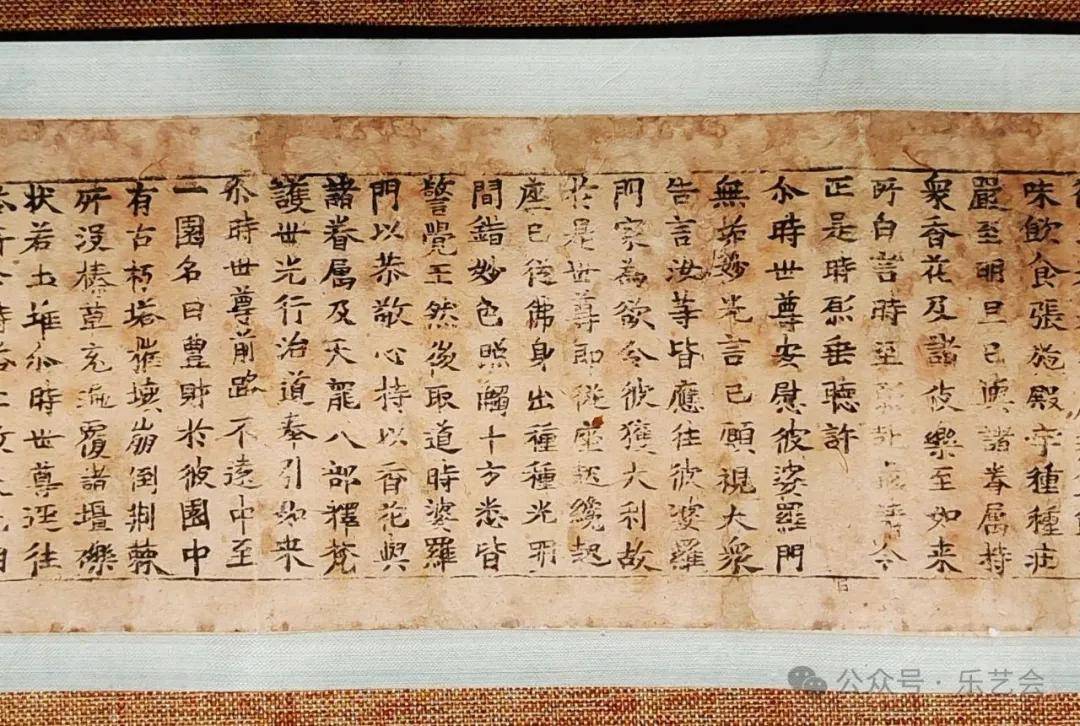 味飲食張施殿宇種種莊
嚴至明旦已與諸眷属持
衆香花及諸伎樂至如来
所白言時至 今
正是時願垂聽許
尒時世尊安慰彼婆羅門
無垢妙光言已顧視大衆
告言汝等皆應往彼婆羅
門家為欲令彼獲大利故
於是世尊即從座起纔起
座已從佛身出種種光明
間錯妙色照觸十方悉皆
警覺王然後取道時婆羅
門以恭敬心持以香花與
諸眷属及天龍八部釋梵
護世光行治道奉引如来
尒時世尊前路不遠中至
一園名曰豊財於彼園中
有古朽塔摧壊崩倒荆棘
所没榛草充遍覆諸壇礫
状若土堆尒時世尊逕往
公众号·乐艺会